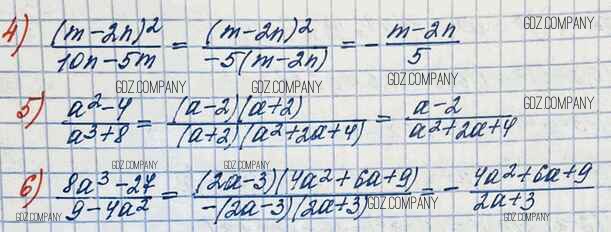 4) (m-2n)²/(10n-5m) = (m-2n)²/(-5(m-2n)) = - (m-2n)/5 GDZ.COMPANY
GDZ.COMPANY GDZ.COMPANY GDZ.COMPANY
5) (a²-4)/(a³+8) = ((a-2)(a+2))/((a+2)(a²+2a+4)) = (a-2)/(a²+2a+4) GDZ.COMPANY
GDZ.COMPANY GDZ.COMPANY
6) (8a³-27)/(9-4a²) = ((2a-3)(4a²+6a+9))/(-(2a-3)(2a+3)) = - (4a²+6a+9)/(2a+3)
GDZ.COMPANY GDZ.COMPANY GDZ.COMPANY GDZ.COMPANY